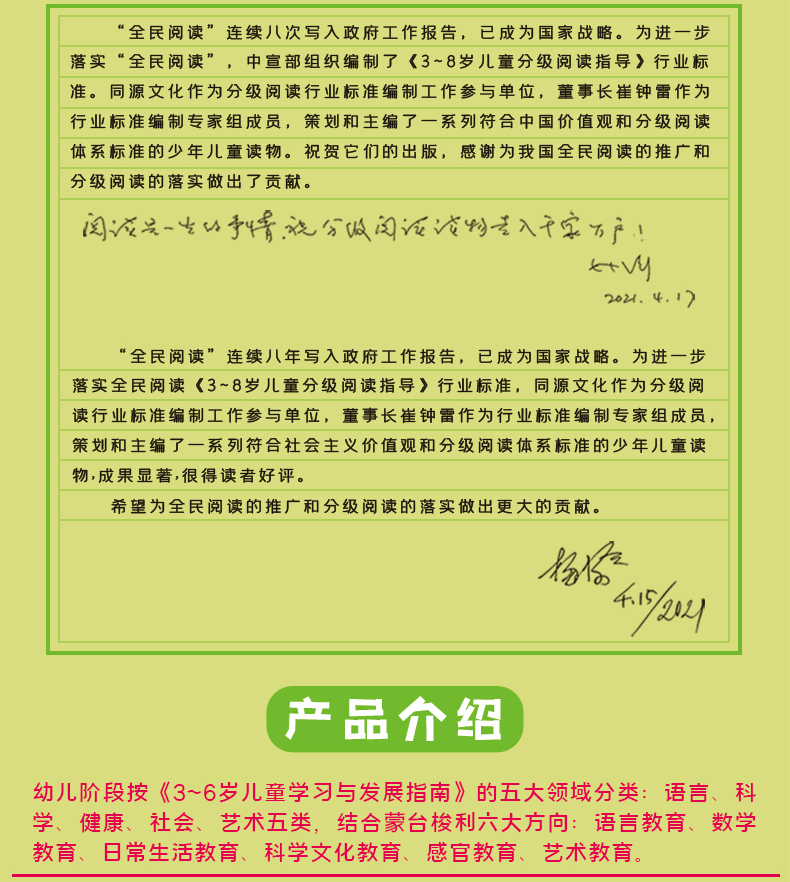 “全民阅读”连续八次写入政府工作报告，已成为国家战略。为进一步
落实“全民阅读”，中宣部组织编制了《3~8岁儿童分级阅读指导》行业标
准。同源文化作为分级阅读行业标准编制工作参与单位，董事长崔钟雷作为
行业标准编制专家组成员，策划和主编了一系列符合中国价值观和分级阅读
体系标准的少年儿童读物。祝贺它们的出版，感谢为我国全民阅读的推广和
分级阅读的落实做出了贡献。
阅读是一生的事情，祝分级阅读读物走入千家万户！
2021.4.17
“全民阅读”连续八年写入政府工作报告，已成为国家战略。为进一步
落实全民阅读《3~8岁儿童分级阅读指导》行业标准，同源文化作为分级阅
读行业标准编制工作参与单位，董事长崔钟雷作为行业标准编制专家组成员，
策划和主编了一系列符合社会主义价值观和分级阅读体系标准的少年儿童读
物，成果显著，很得读者好评。
希望为全民阅读的推广和分级阅读的落实做出更大的贡献。
4.15/2021
产品介绍
幼儿阶段按《3~6岁儿童学习与发展指南》的五大领域分类：语言、科
学、健康、社会、艺术五类，结合蒙台梭利六大方向：语言教育、数学
教育、日常生活教育、科学文化教育、感官教育、艺术教育。